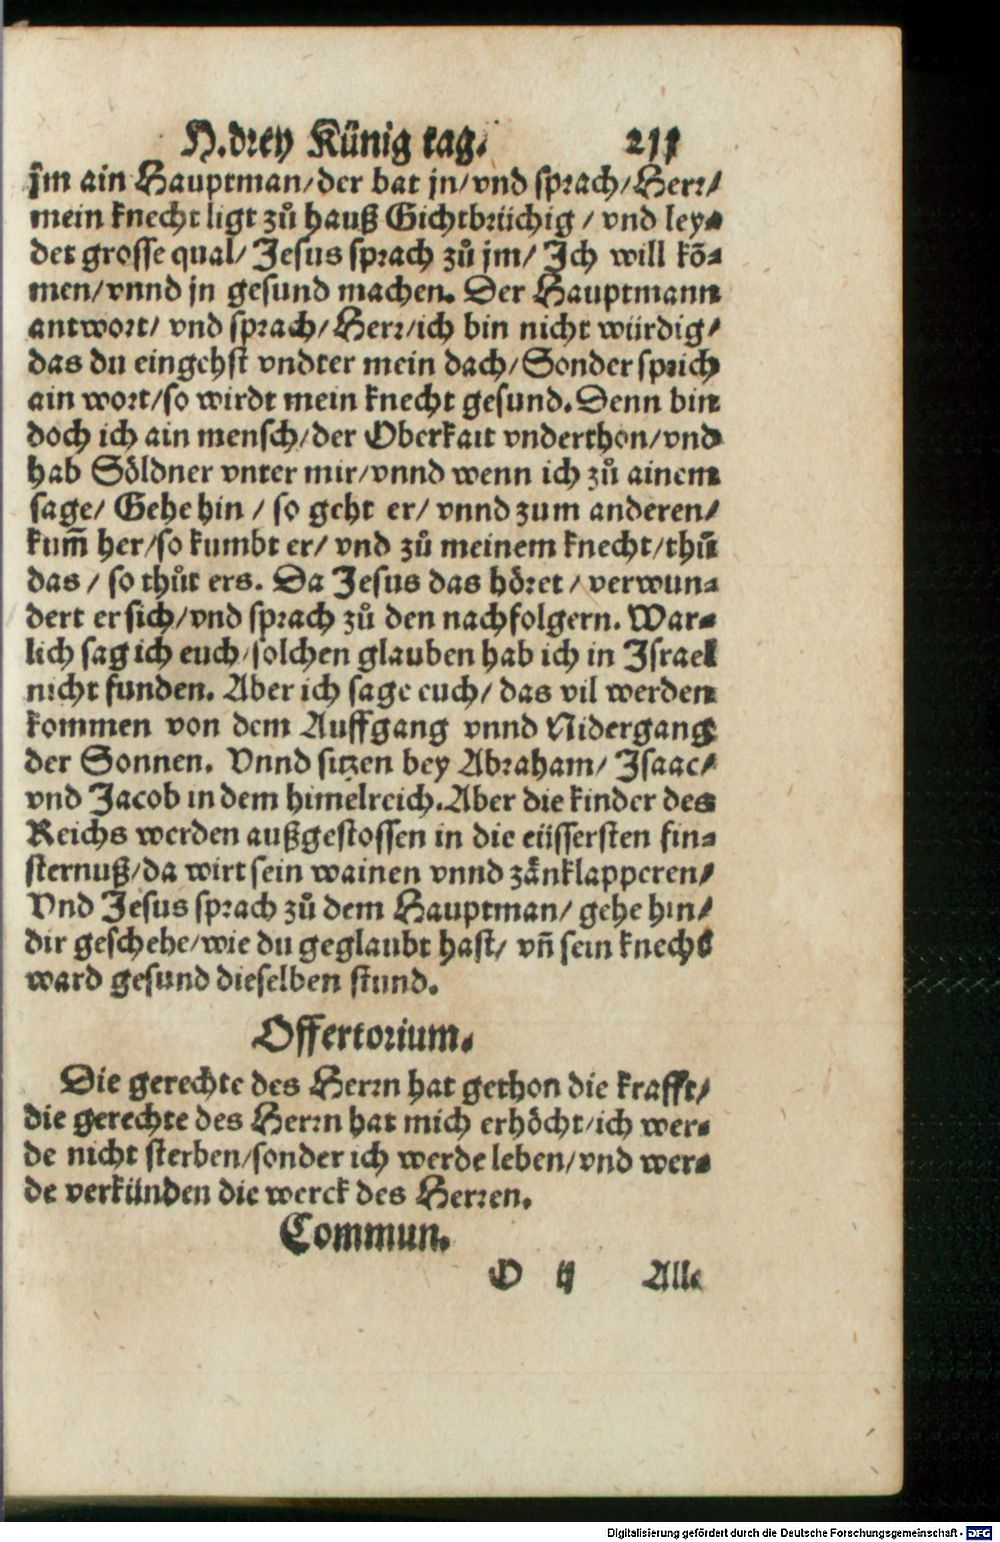 H.drey Künig tag. 211
jm ain Hauptman/der bat jn/vnd sprach/Herr/
mein knecht ligt zů hauß Gichtbrüchig / vnd ley-
det grosse qual/ Jesus sprach zů jm/ Ich will kõ-
men/vnnd jn gesund machen. Der Hauptmann
antwort/ vnd sprach/Herr/ich bin nicht würdig/
das du eingehst vndter mein dach/Sonder sprich
ain wort/so wirdt mein knecht gesund.Denn bin
doch ich ain mensch/der Oberkait vnderthon/vnd
hab Söldner vnter mir/vnnd wenn ich zů ainem
sage/ Gehe hin / so geht er/ vnnd zum anderen/
kum̃ her/so kumbt er/ vnd zů meinem knecht/thů
das / so thůt ers. Da Jesus das höret / verwun-
dert er sich/vnd sprach zů den nachfolgern. War-
lich sag ich euch/solchen glauben hab ich in Israel
nicht funden. Aber ich sage euch/ das vil werden
kommen von dem Auffgang vnnd Nidergang
der Sonnen. Vnnd sitzen bey Abraham/ Isaac/
vnd Jacob in dem himelreich.Aber die kinder des
Reichs werden außgestossen in die eüssersten fin-
sternuß/da wirt sein wainen vnnd zänklapperen/
Vnd Jesus sprach zů dem Hauptman/ gehe hin/
dir geschehe/wie du geglaubt hast/ vñ sein knecht
ward gesund dieselben stund.
Offertorium.
Die gerechte des Herrn hat gethon die krafft/
die gerechte des Herrn hat mich erhöcht/ich wer-
de nicht sterben/sonder ich werde leben/vnd wer-
de verkünden die werck des Herren.
Commun.
O ij Alle
Digitalisierung gefördert durch die Deutsche Forschungsgemeinschaft - DFG